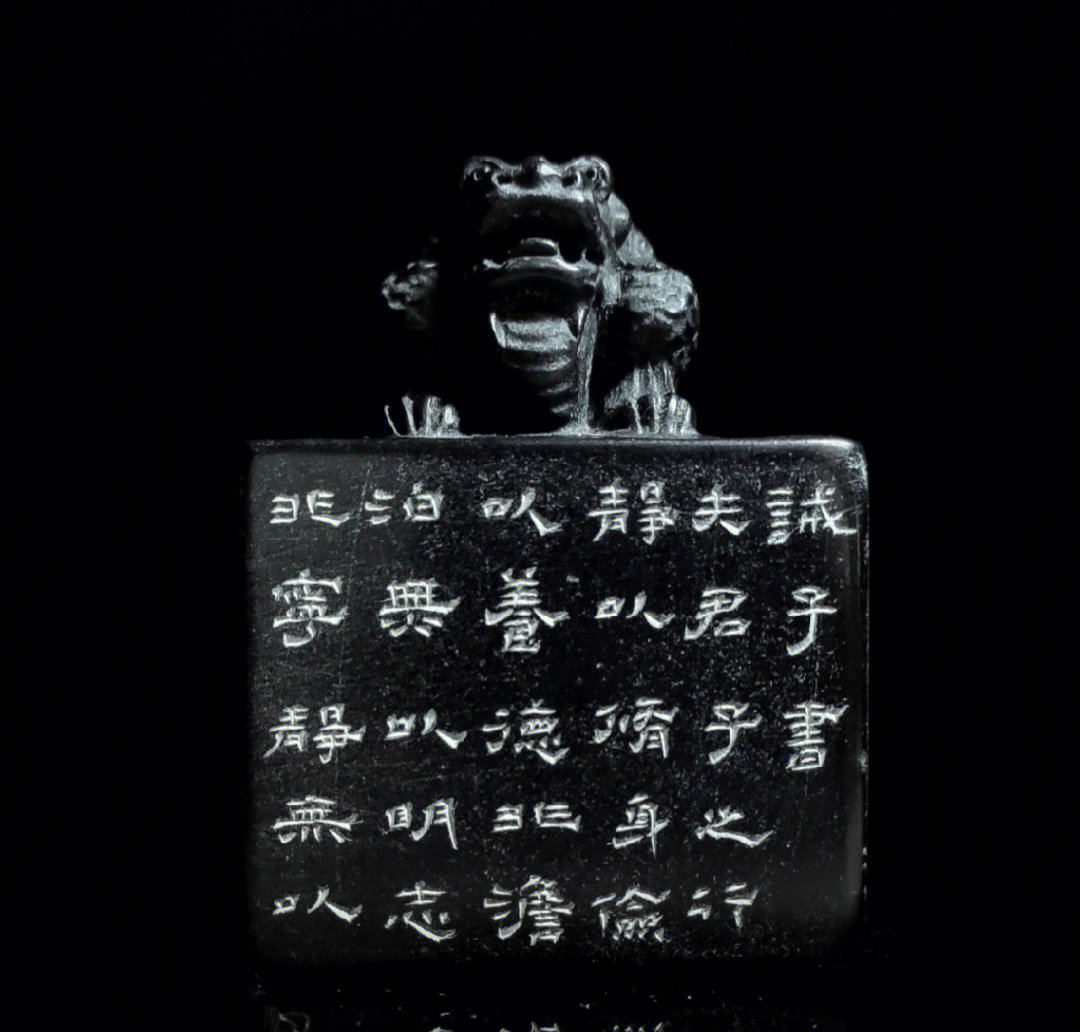 誡子書
夫君子之行
靜以脩身儉
以養德非澹
泊無以明志
非寧靜無以